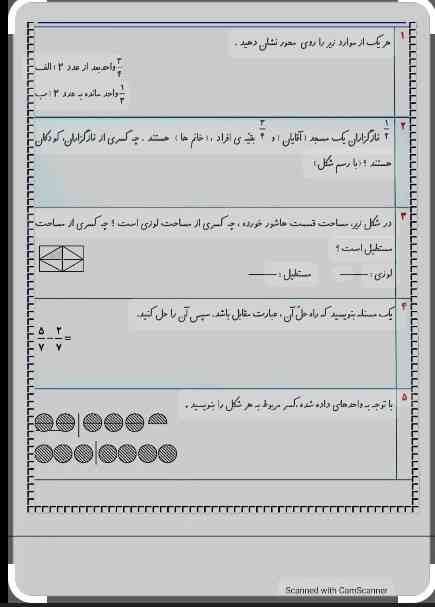 ۱ هر یک از موارد زیر را روی محور نشان دهید .
الف : ۳ عدد از بعد واحد ۳/۴
ب : ۳ عدد به مانده واحد ۱/۳
۲ ۱/۲ نمازگزاران یک مسجد (آقایان) و ۳/۴ بقیه ی افراد ، (خانم ها) هستند . چه کسری از نمازگزاران، کودکان
هستند ؟ (با رسم شکل)
۳ در شکل زیر، مساحت قسمت هاشور خورده ، چه کسری از مساحت لوزی است ؟ چه کسری از مساحت
مستطیل است ؟
لوزی : ــــــ مستطیل : ــــــ
۴ یک مسئله بنویسید که راه حل آن ، عبارت مقابل باشد. سپس آن را حل کنید.
۵/۷ − ۲/۷ =
۵ با توجه به واحدهای داده شده ،کسر مربوط به هر شکل را بنویسید .
Scanned with CamScanner